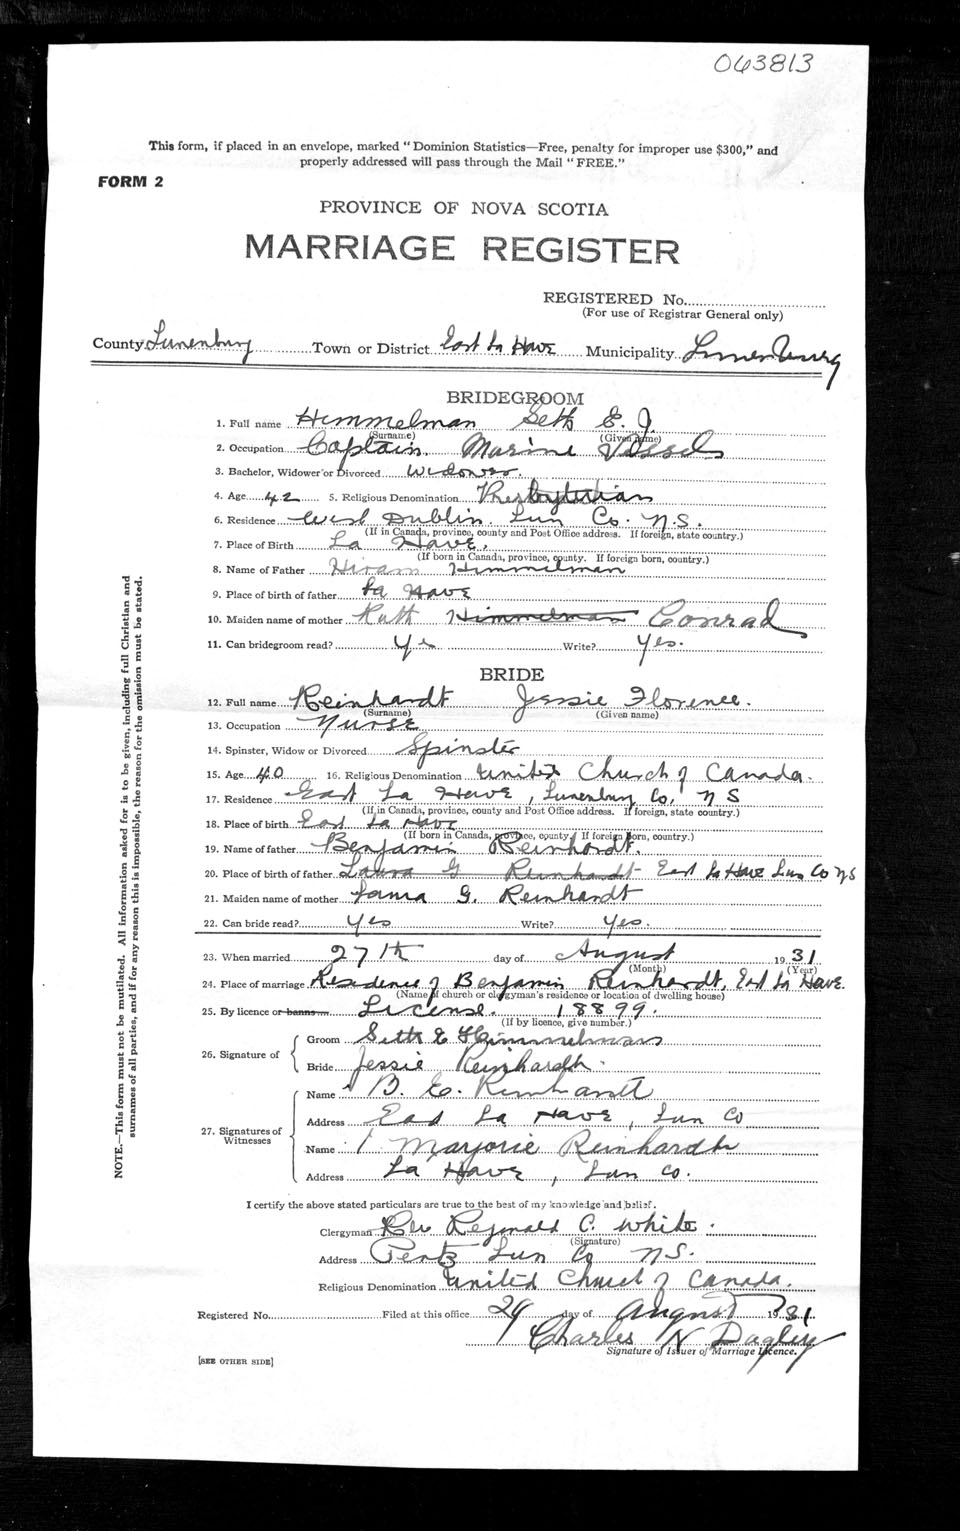 063813
This form, if placed in an envelope, marked "Dominion Statistics—Free, penalty for improper use $300," and
properly addressed will pass through the Mail "FREE."
FORM 2
PROVINCE OF NOVA SCOTIA
MARRIAGE REGISTER
REGISTERED No.
(For use of Registrar General only)
County Lunenburg Town or District East La Have Municipality Lunenburg
BRIDEGROOM
1. Full name Himmelman Seth E. J.
(Surname) (Given name)
2. Occupation Captain. Marine Vessels
3. Bachelor, Widower or Divorced Widower.
4. Age 42 5. Religious Denomination Presbyterian
6. Residence West Dublin. Lun Co. N.S.
(If in Canada, province, county and Post Office address. If foreign, state country.)
7. Place of Birth La Have.
(If born in Canada, province, county. If foreign born, country.)
8. Name of Father Hiram Himmelman
9. Place of birth of father La Have
10. Maiden name of mother Ruth Himmelman Conrad
11. Can bridegroom read? Yes Write? Yes.
BRIDE
12. Full name Reinhardt Jessie Florence.
(Surname) (Given name)
13. Occupation Nurse
14. Spinster, Widow or Divorced Spinster
15. Age 40 16. Religious Denomination United Church of Canada.
17. Residence East La Have, Lunenburg Co, N S
(If in Canada, province, county and Post Office address. If foreign, state country.)
18. Place of birth East La Have
(If born in Canada, province, county. If foreign born, country.)
19. Name of father Benjamin Reinhardt.
20. Place of birth of father Laura G Reinhardt East La Have Lun Co NS
21. Maiden name of mother Laura G. Reinhardt
22. Can bride read? Yes Write? Yes.
23. When married 27th day of August 1931
(Month) (Year)
24. Place of marriage Residence of Benjamin Reinhardt, East La Have.
(Name of church or clergyman's residence or location of dwelling house)
25. By licence or banns License. 18899.
(If by licence, give number.)
26. Signature of
Groom Seth E Himmelman
Bride Jessie Reinhardt.
27. Signatures of Witnesses
Name B. E. Reinhardt
Address East La Have, Lun Co
Name Marjorie Reinhardt
Address La Have, Lun Co.
I certify the above stated particulars are true to the best of my knowledge and belief.
Clergyman Rev Reginald C. White.
(Signature)
Address Pentz Lun Co N.S.
Religious Denomination United Church of Canada.
Registered No. Filed at this office 29 day of August 1931
Charles N Dagley
Signature of Issuer of Marriage Licence.
[SEE OTHER SIDE]
NOTE.—This form must not be mutilated. All information asked for is to be given, including full Christian and
surnames of all parties, and if for any reason this is impossible, the reason for the omission must be stated.